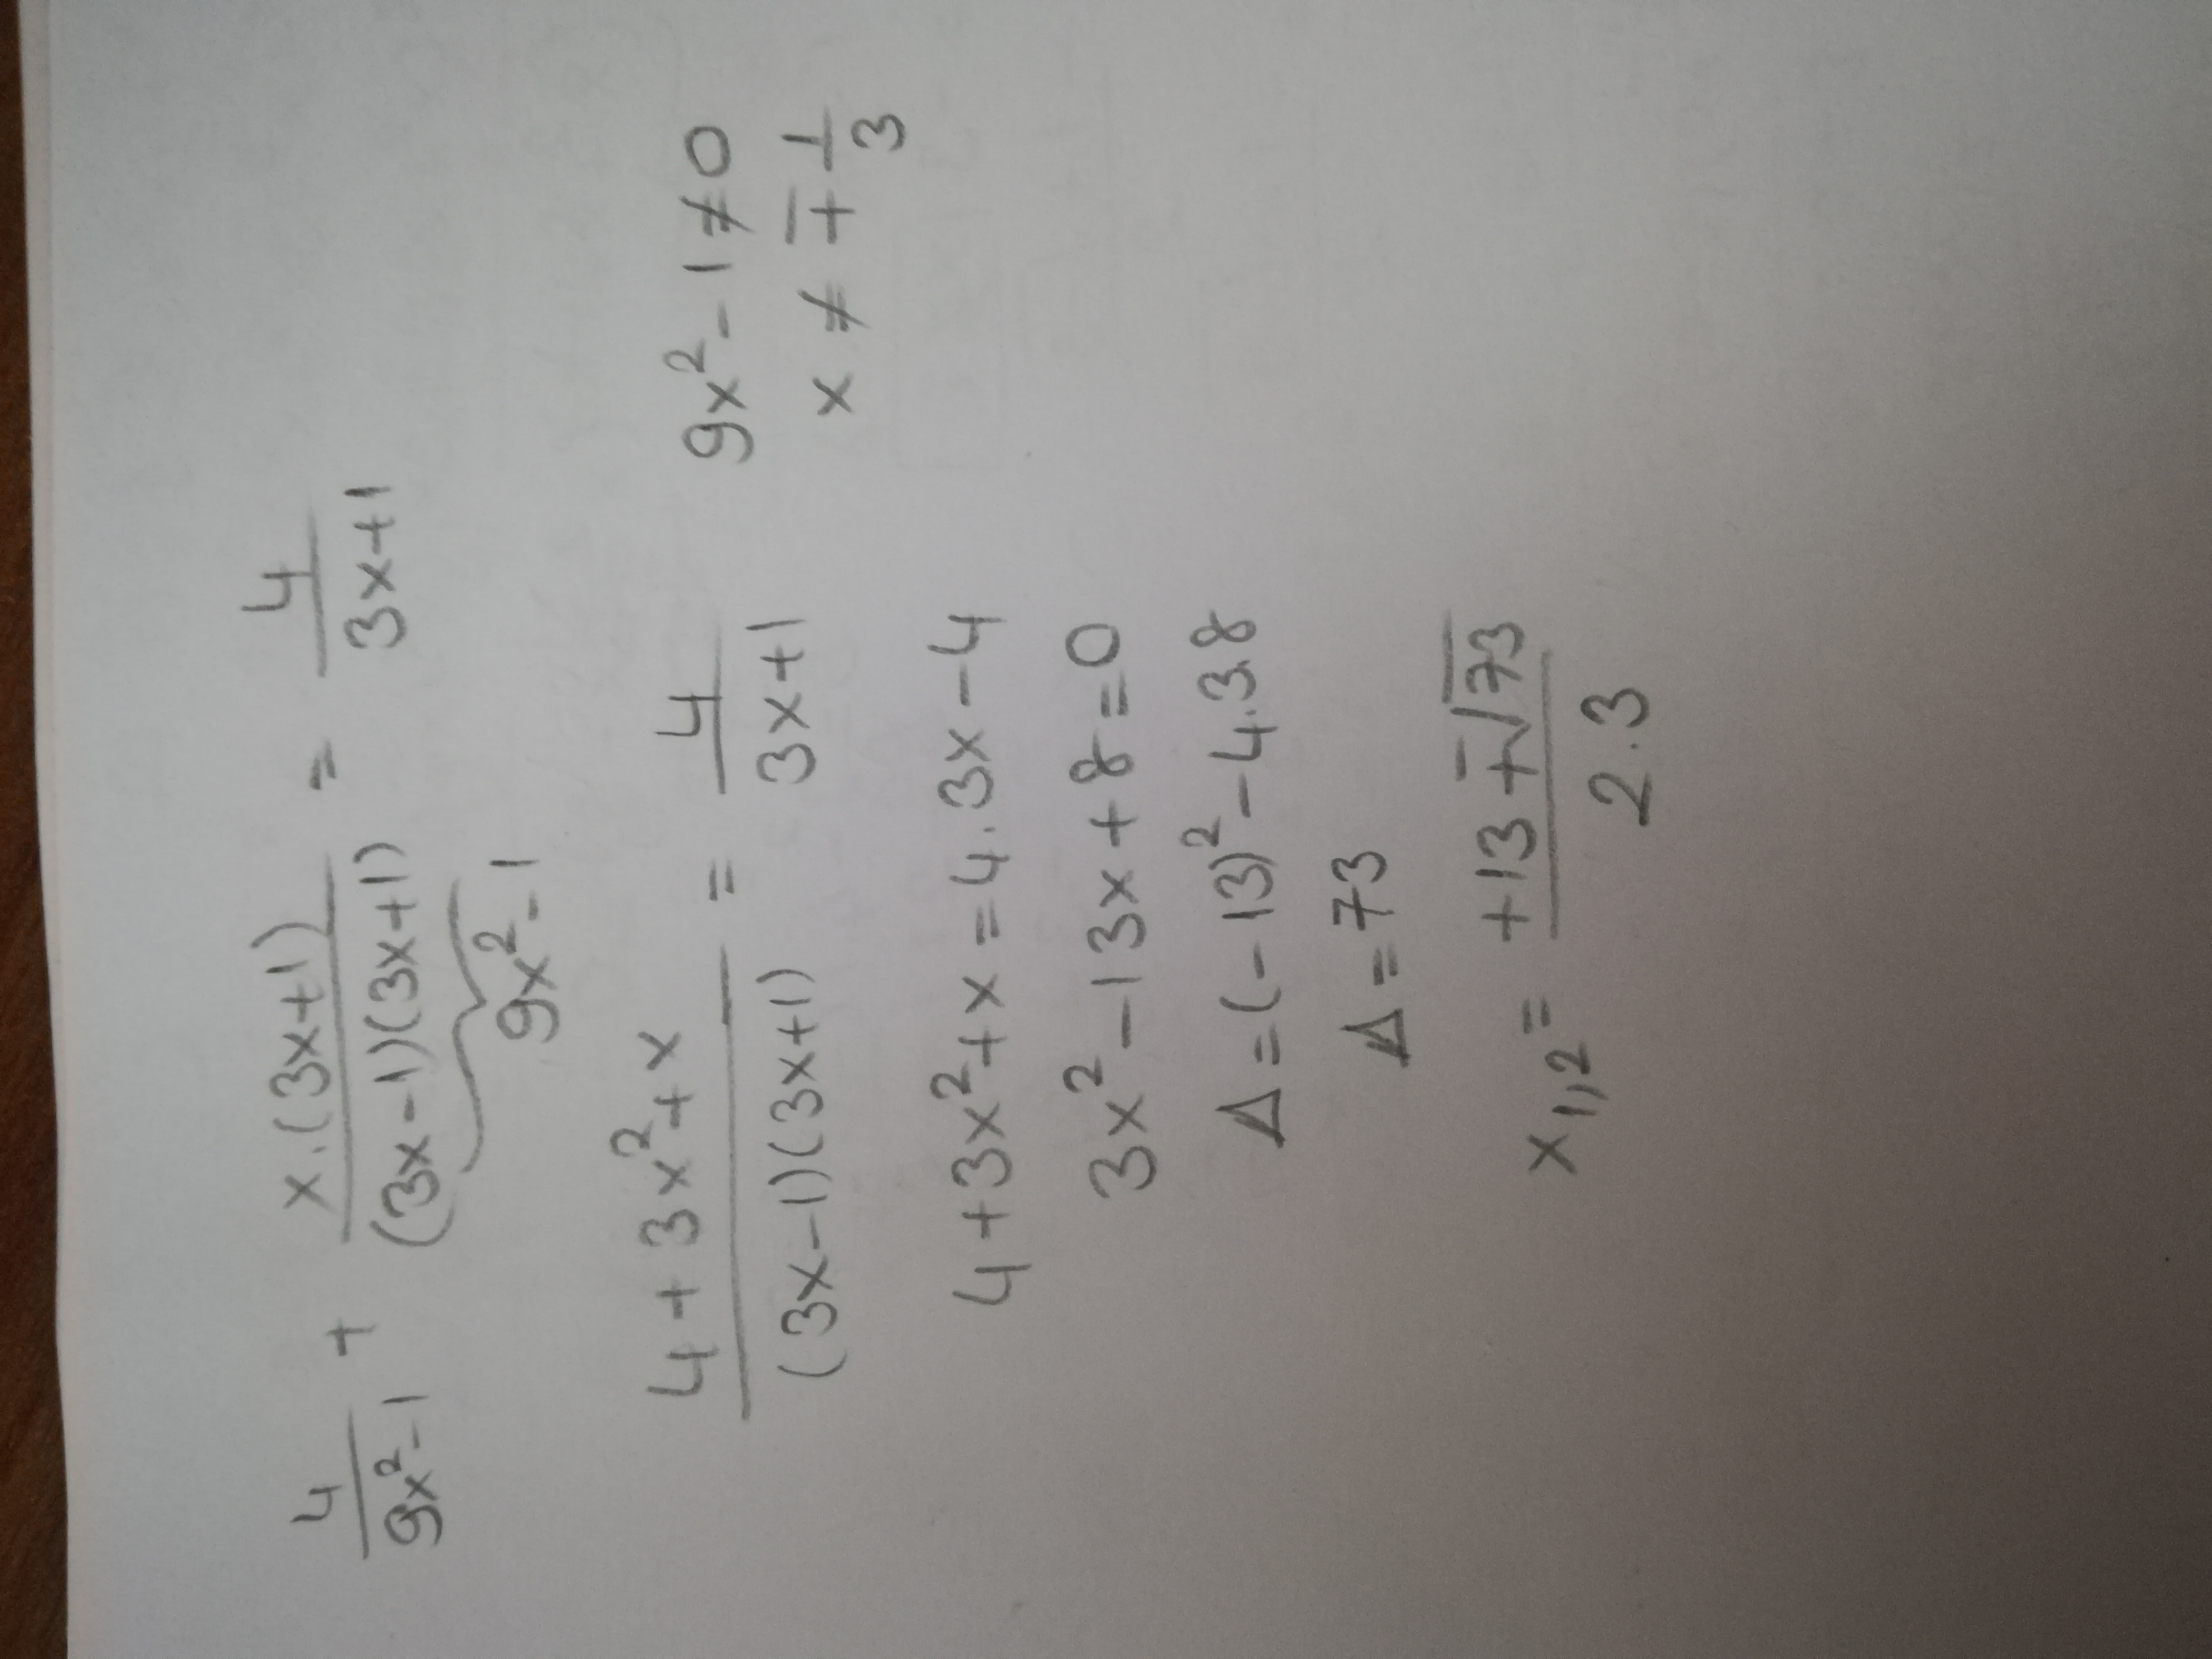 4/(9x²-1) + x.(3x+1)/((3x-1)(3x+1)) = 4/(3x+1)
9x²-1
(4+3x²+x)/((3x-1)(3x+1)) = 4/(3x+1)
9x²-1≠0
x ≠ ∓ 1/3
4+3x²+x=4.3x-4
3x²-13x+8=0
Δ=(-13)²-4.3.8
Δ=73
x₁,₂= (+13∓√73)/(2.3)